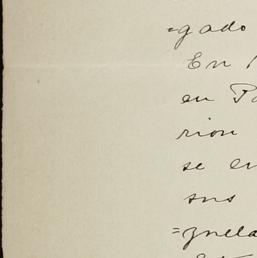 =gado
En
en Pa
rion
se en
sus
=zuela